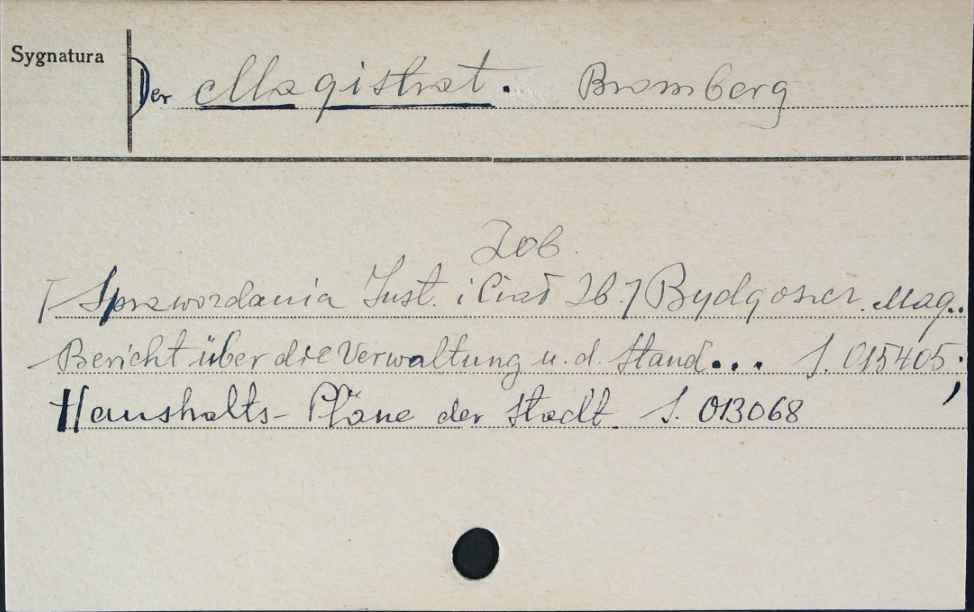 Sygnatura
Der Magistrat. Bromberg
Zob.
[Sprawozdania Inst. i Ciał Zb.] Bydgoszcz. Mag..
Bericht über die Verwaltung u. d. Stand... S. 015405.
Haushalts-Pläne der Stadt. S. 013068